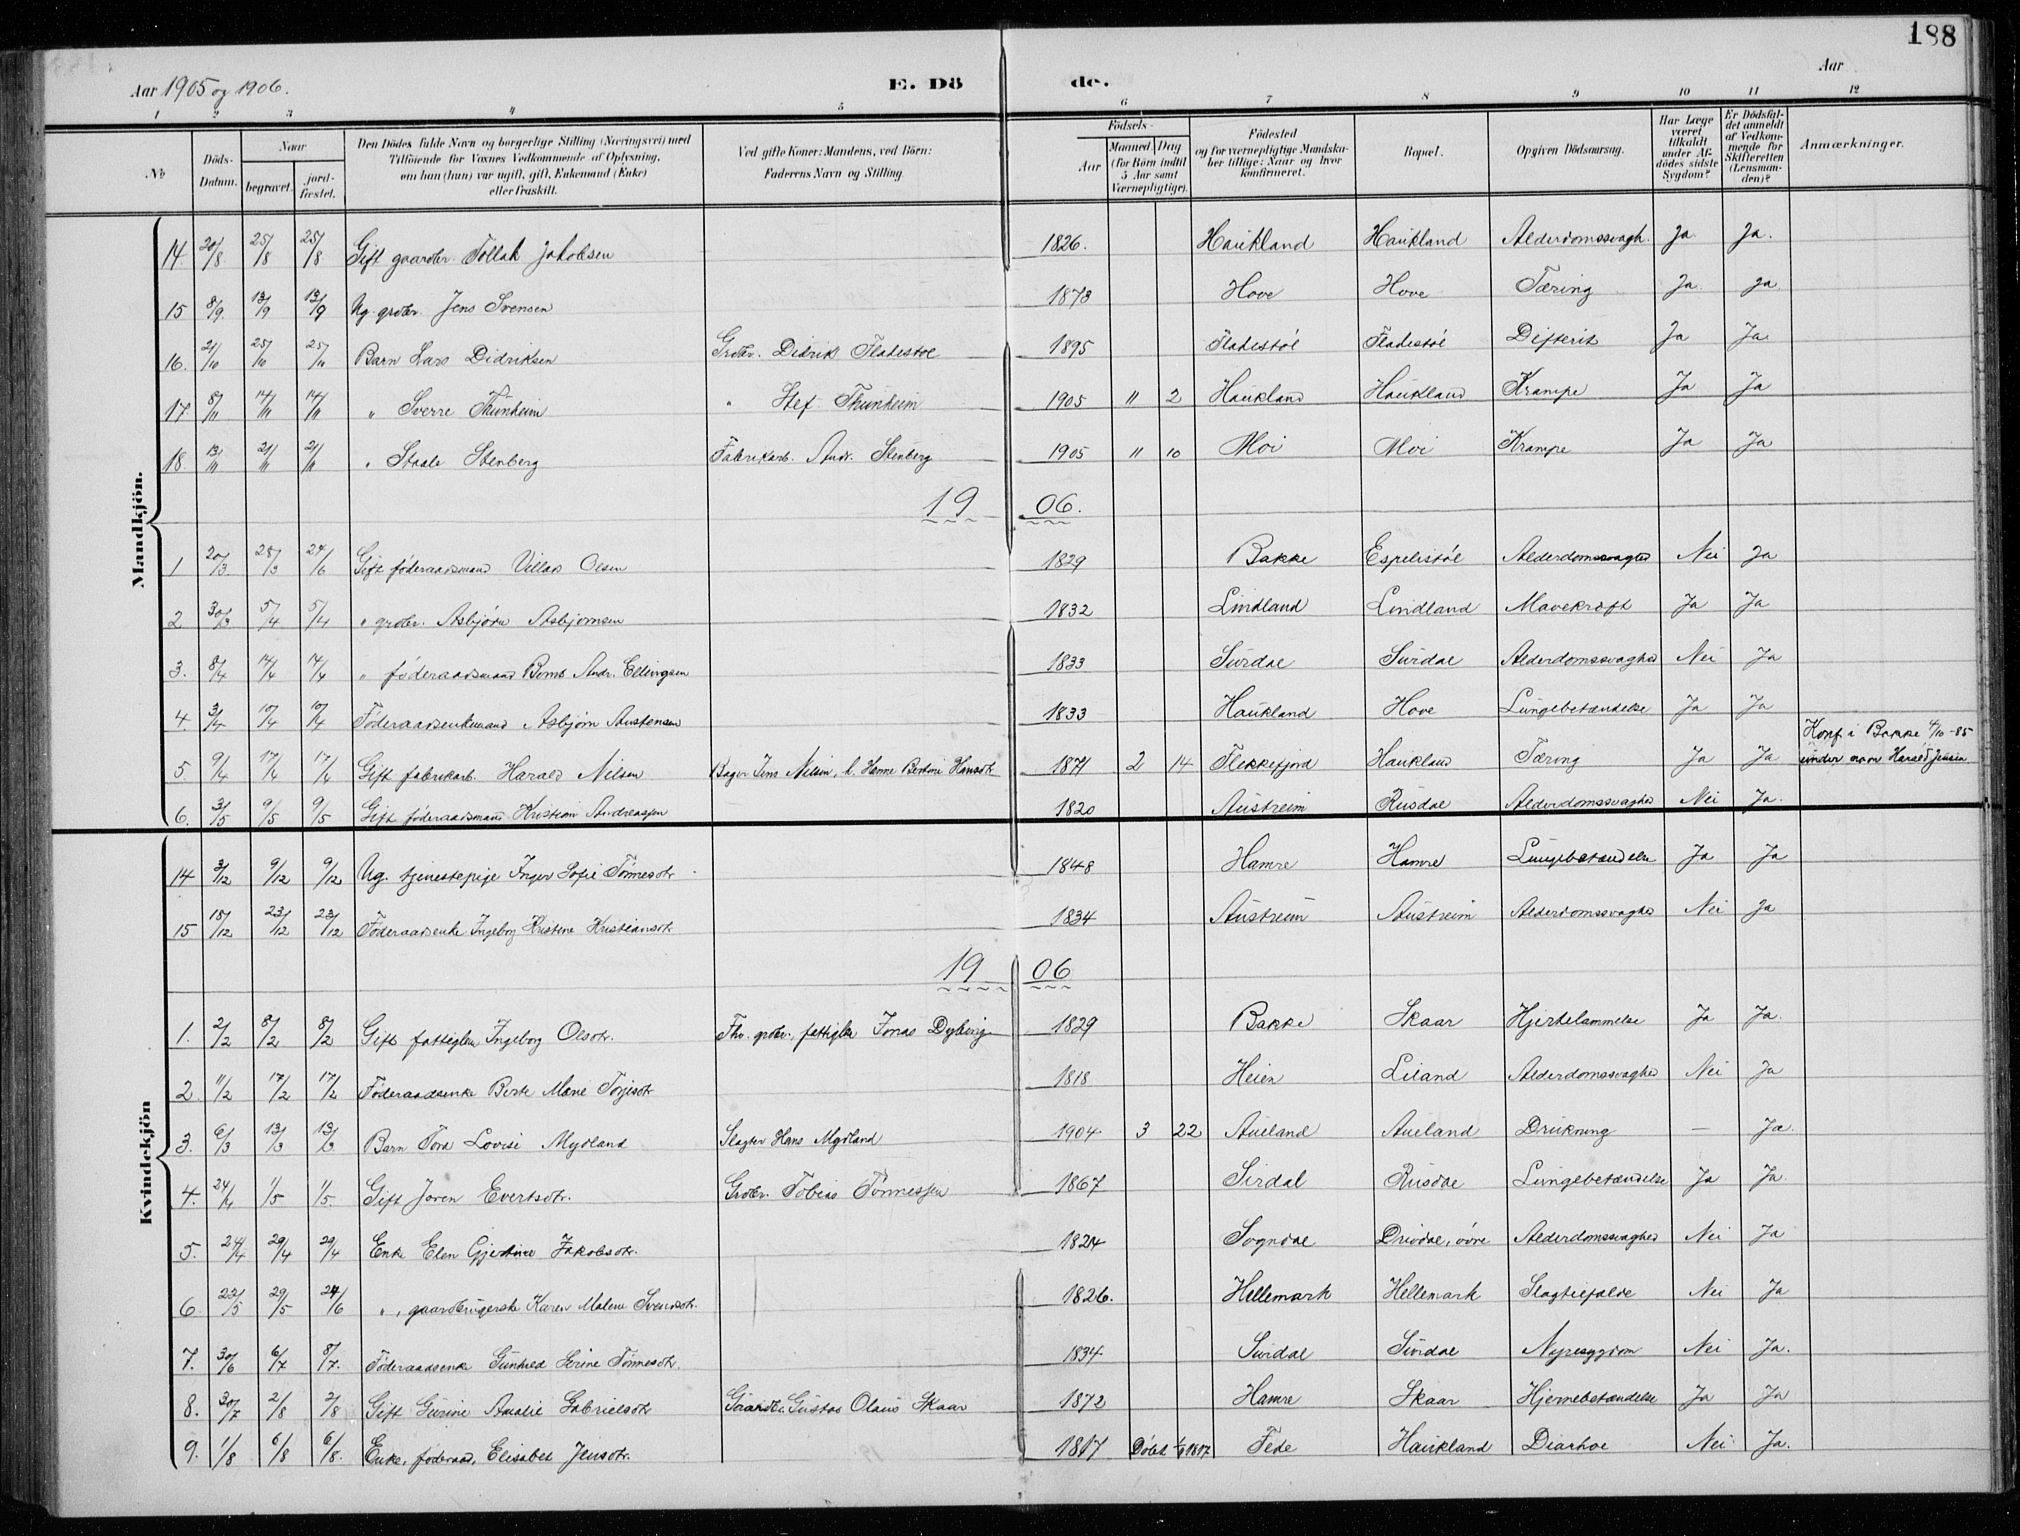 188
Aar 1905 og 1906.
E. Dö de.
Aar
1 2 3 4 5 6 7 8 9 10 11 12
No
Döds-Datum.
Naar
begravet.
jord-fæstet.
Den Dödes fulde Navn og borgerlige Stilling (Næringsvei) med
Tilföiende for Voxnes Vedkommende af Oplysning,
om han (hun) var ugift, gift, Enkemand (Enke)
eller fraskilt.
Ved gifte Koner: Mandens, ved Börn:
Faderens Navn og Stilling.
Födsels-
Aar
Maaned. Dag
(for Börn indtil
5 Aar samt
Værnepligtige).
Födested
og for værnepligtige Mandska-
ber tillige: Naar og hvor
konfirmeret.
Bopæl.
Opgiven Dödsaarsag.
Har Læge
været
tilkaldt
under Af-
dödes sidste
Sygdom?
Er Dödsfal-
det anmeldt
af Vedkom-
mende for
Skifteretten
(Lensman-
den)?
Anmærkninger.
Mandkjön.
14 20/8 25/8 25/8 Gift gaardbr. Tollak Jakobsen 1826. Haukland Haukland Alderdomssvagh. Ja Ja.
15 8/9. 13/9 13/9 Ug. grdbr. Jens Svensen 1873 Hove Hove Tæring Ja Ja
16. 21/10 25/10 25/10 Barn Lars Didriksen Grdbr. Didrik Fladestøl 1895 Fladestøl Fladestøl Difterit Ja Ja
17. 8/11 14/11 14/11 " Sverre Thunheim " Stef. Thunheim 1905 " 2 Haukland Haukland Krampe Ja Ja
18. 13/11 21/11 21/11 " Staale Stenberg Fabrikarb. Andr. Stenberg 1905 " 10 Moi Moi Krampe Ja Ja
19 06.
1 20/3 28/3 24/6 Gift føderaadsmand Villas Olsen 1829 Bakke Espelistøl Alderdomssvaghed Nei Ja
2 30/3 5/4 5/4 " grdbr. Asbjørn Asbjørnsen 1832 Lindland Lindland Mavekræft Ja Ja
3. 8/4 14/4 14/4 " føderaadsmand Bernt Andr. Ellingsen 1833 Surdal Surdal Alderdomssvaghed Nei Ja
4. 3/4 10/4 10/4 Føderaadsenkemand Asbjørn Austensen 1833 Haukland Hove Lungebetændelse Ja Ja
5. 9/4 17/4 17/4 Gift fabrikarb. Harald Nilsen Bager Jens Nilsen, h. Hanne Bertine Hansdtr. 1871 2 14 Flekkefjord Haukland Tæring Ja Ja Konf. i Bakke 4/10-85 under navn Harald Jensen
6. 3/5 9/5 9/5 Gift føderaadsmand Kristian Andreassen 1820 Austreim Rusdal Alderdomssvaghed Nei Ja.
Kvindekjön
14 3/12 9/12 9/12 Ug. tjenestepige Inger Sofie Tønnesdtr. 1848 Hamre Hamre Lungebetændelse Ja Ja
15 15/12 23/12 23/12 Føderaadsenke Ingeborg Kristine Kristiansdtr. 1834 Austreim Austreim Alderdomssvaghed Nei Ja
19 06
1. 2/2 8/2 8/2 Gift fattiglem Ingeborg Olsdtr. Fhv. grdbr., fattiglem Jonas Dybing 1829 Bakke Skaar Hjertelammelse Ja Ja.
2 11/2 17/2 17/2 Føderaadsenke Berte Marie Torjesdtr. 1818 Heien Liland Alderdomssvaghed Nei Ja
3. 6/3 13/3 13/3 Barn Tora Lovise Mydland Slagter Hans Mydland 1904 3 22 Aueland Aueland Drukning — Ja.
4. 24/4 1/5 1/5. Gift Joren Evertsdtr. Grdbr. Tobias Tønnessen 1867 Sirdal Rusdal Lungebetændelse Ja Ja.
5. 24/4 29/4 29/4 Enke Elen Gjertine Jakobsdtr. 1824 Sogndal Drivdal, øvre Alderdomssvaghed Nei Ja
6 22/5 29/5 24/6 " , gaardbrugerske Karen Malene Svensdtr. 1826. Hellemark Hellemark Slagtilfælde Nei Ja
7. 30/6 6/7 8/7. Føderaadsenke Gunhild Serine Tønnesdtr. 1834 Surdal Surdal Nyresygdom Nei Ja.
8. 30/7 2/8 2/8 Gift Gurine Amalie Gabrielsdtr. Gaardbr. Gustav Olaus Skaar 1872 Hamre Skaar Hjernebetændelse Ja Ja
9. 1/8 6/8 6/8. Enke, føderaad, Elisabet Jensdtr. 1817 Døbt 1/1 1817 Fede Haukland Diarhoe Nei Ja.